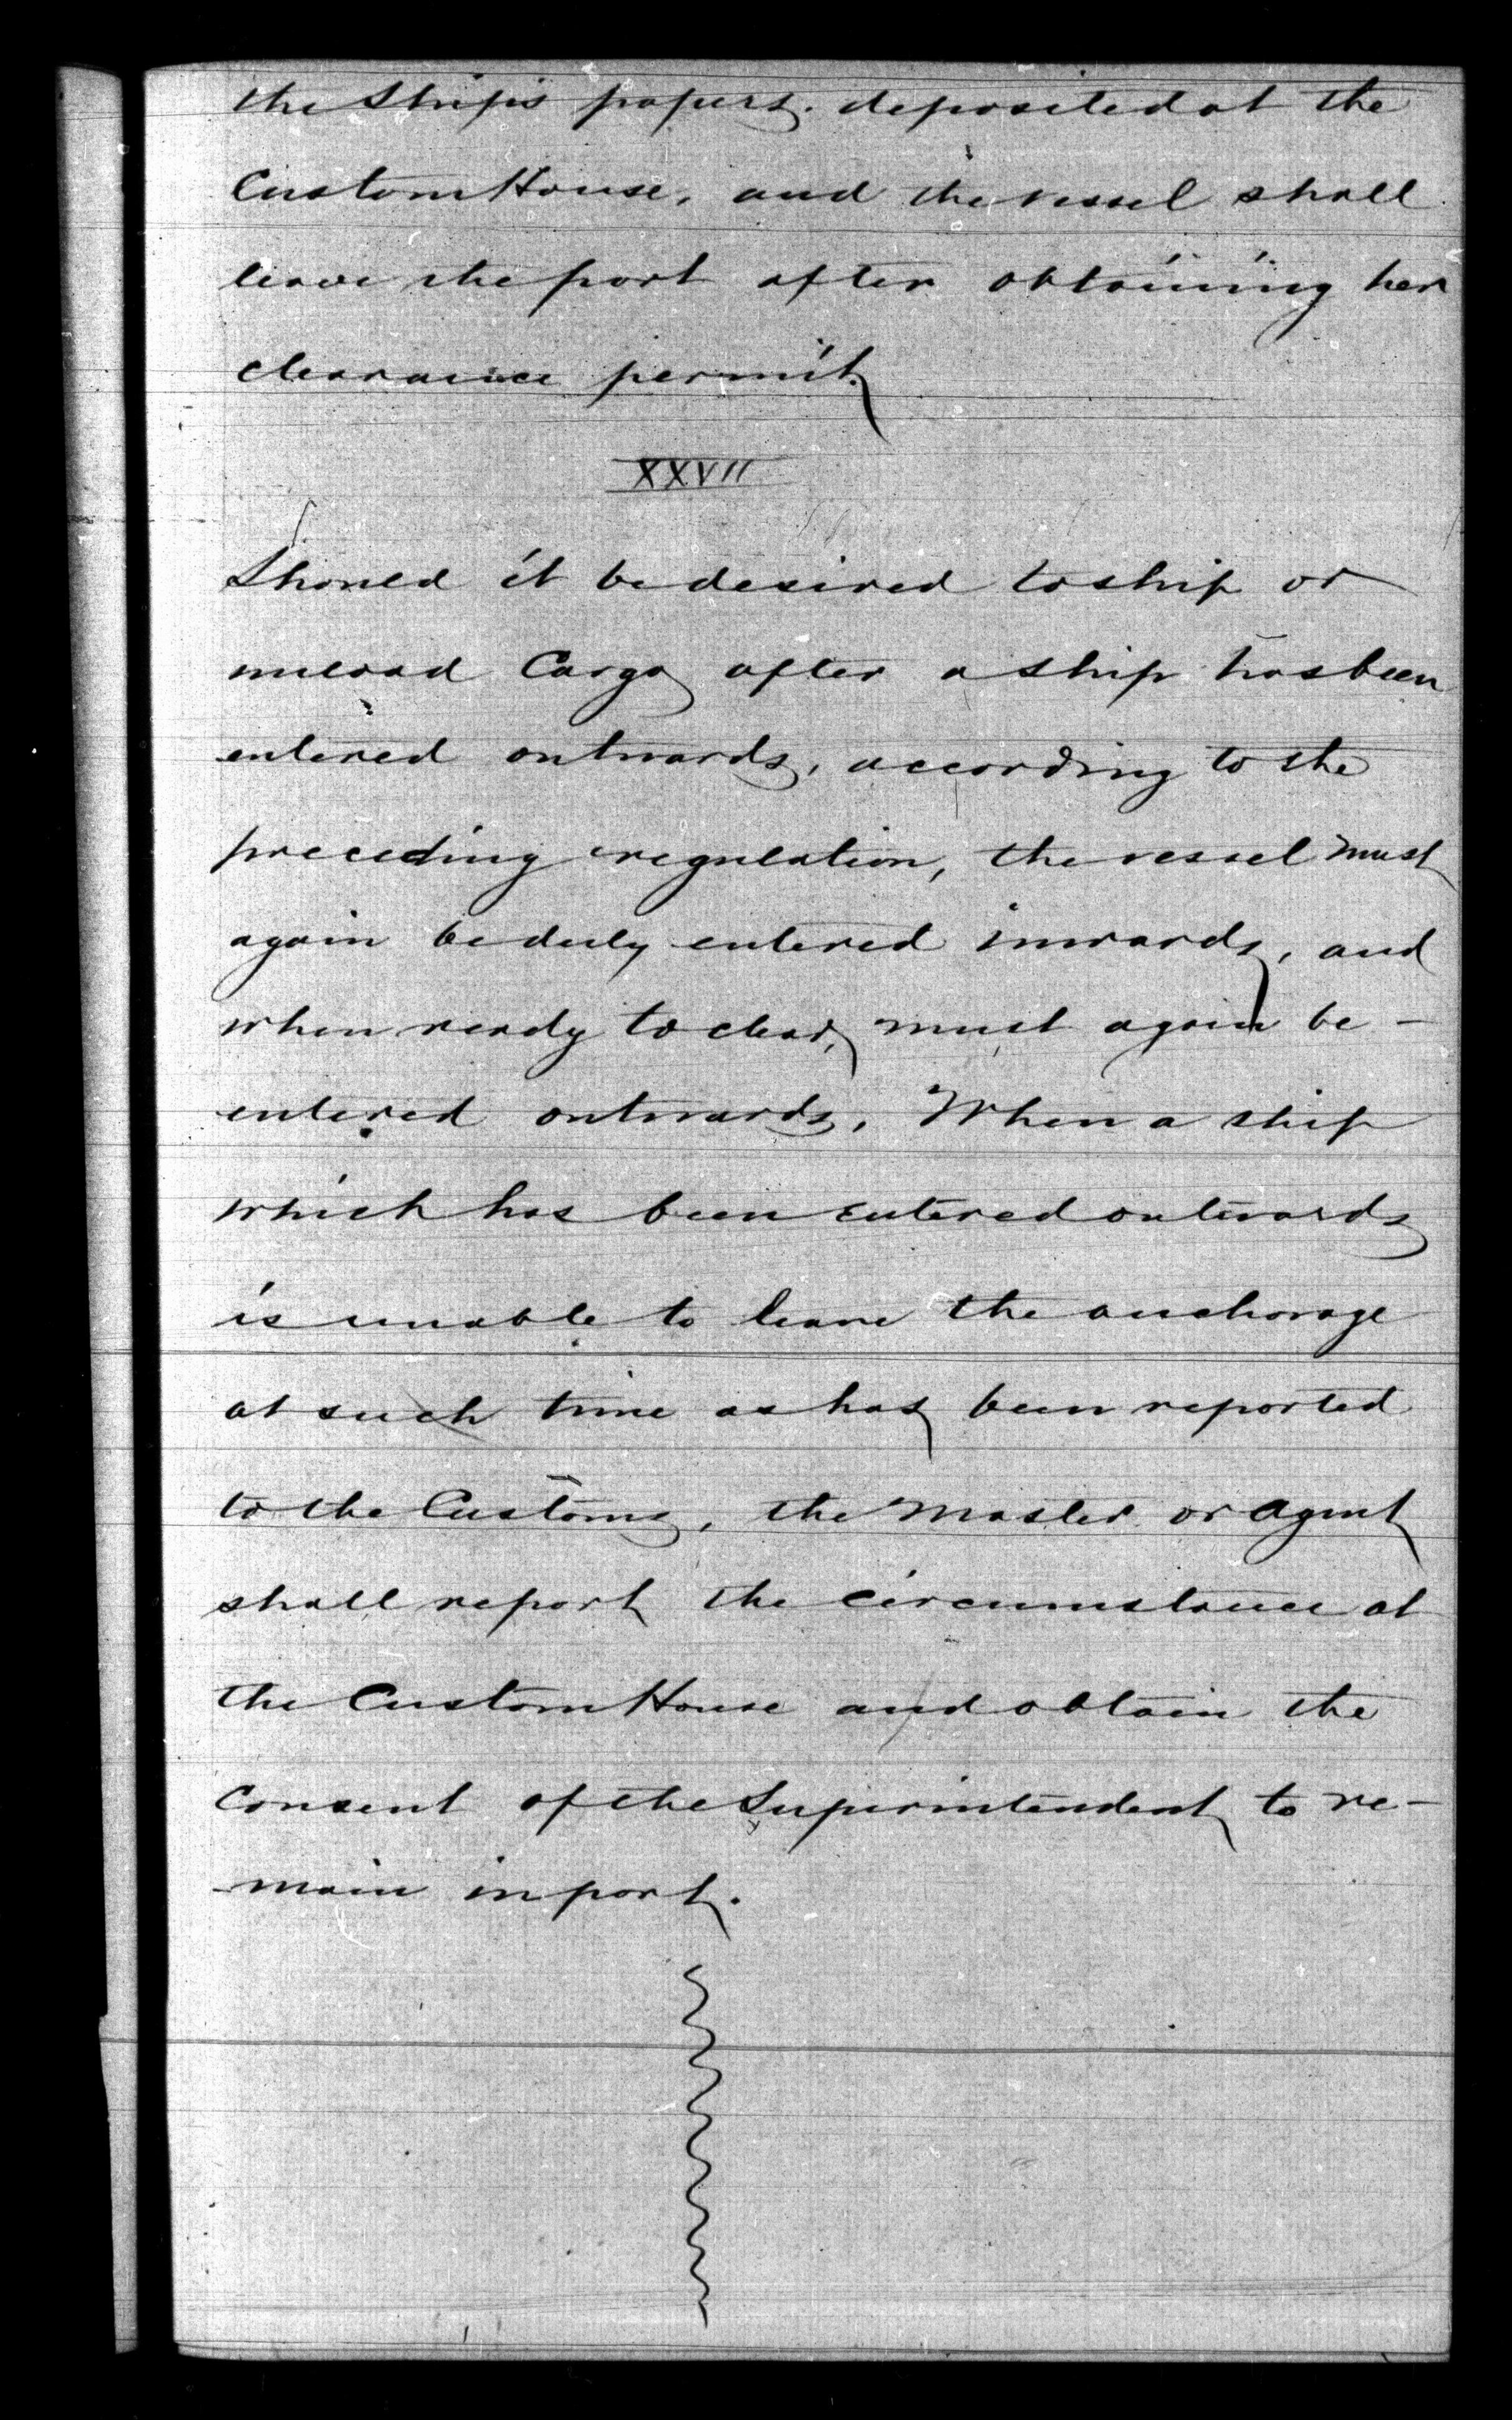 the Ship's papers. deposited at the
Custom House, and the vessel shall
leave the port after obtaining her
clearance permit.
XXVII
Should it be desired to ship or
unload Cargo after a ship has been
entered outwards, according to the
preceding regulation, the vessel must
again be duly entered inwards, and
when ready to clear, must again be -
entered outwards. When a ship
which has been entered outwards
is unable to leave the anchorage
at such time as has been reported
to the Customs, the Master or Agent
shall report the circumstance at
the Custom House and obtain the
Consent of the Superintendent to re-
-main in port.